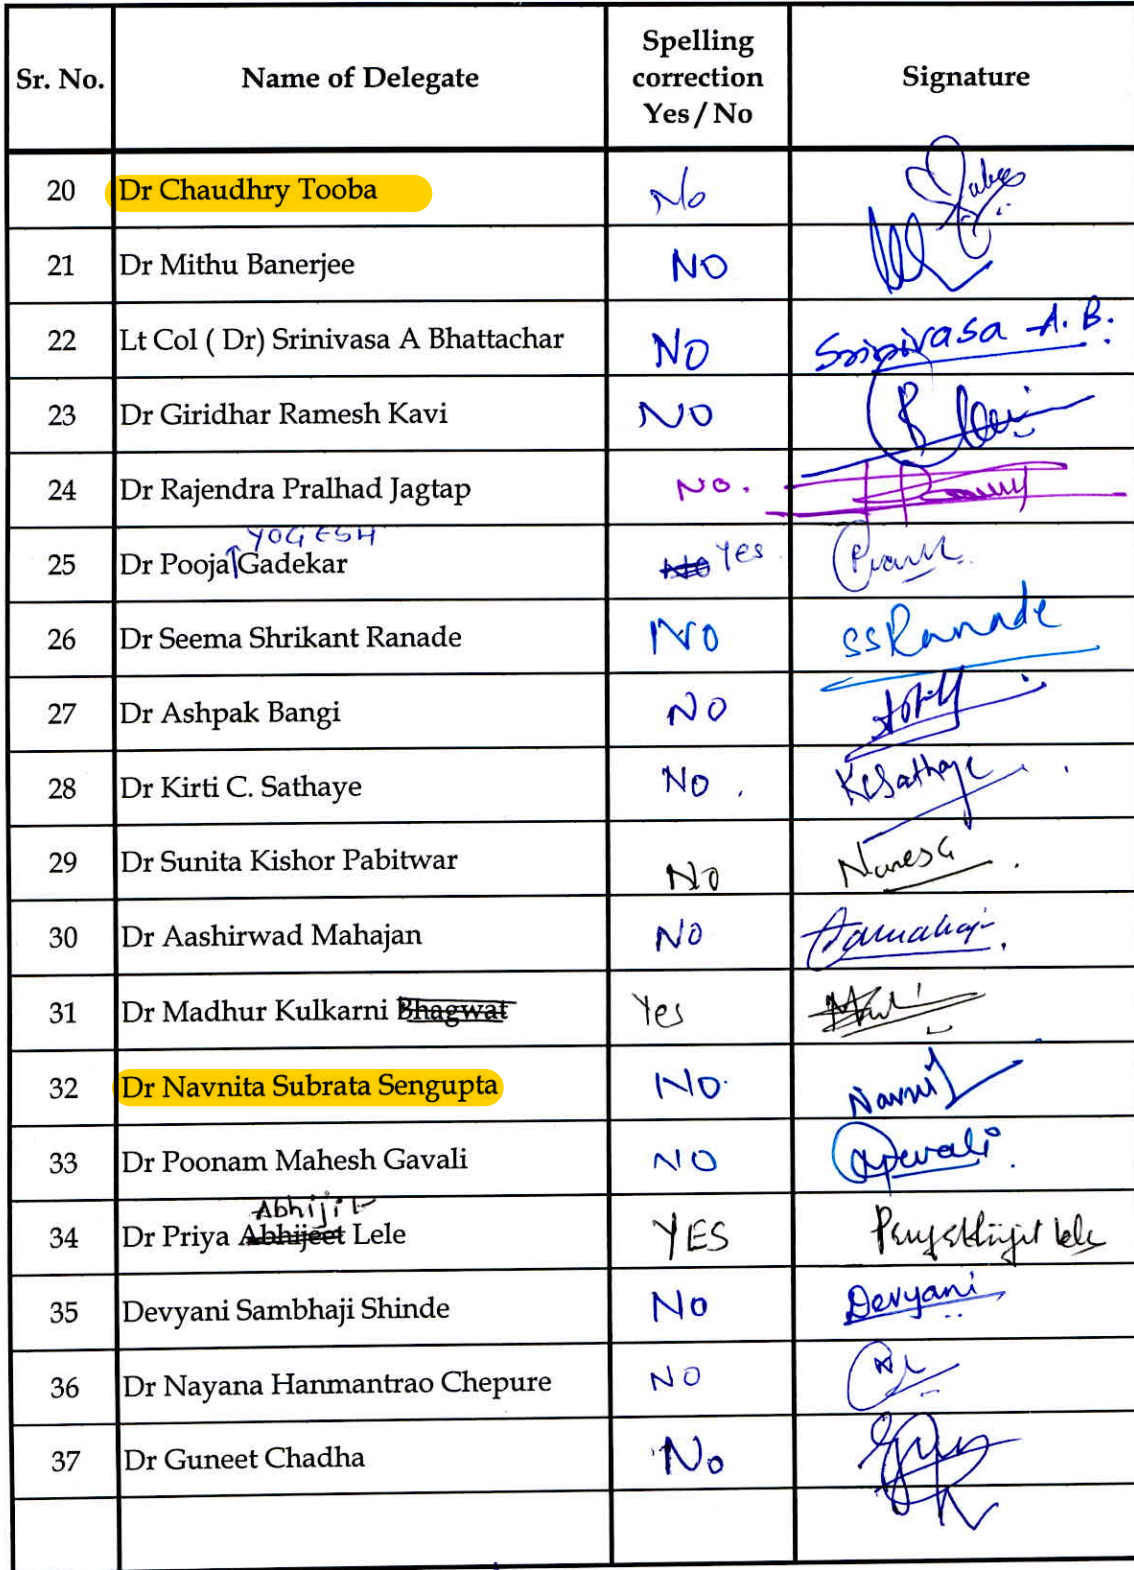 Sr. No. Name of Delegate Spelling correction Yes / No Signature
20 Dr Chaudhry Tooba No
21 Dr Mithu Banerjee NO
22 Lt Col ( Dr) Srinivasa A Bhattachar NO Srinivasa A. B.
23 Dr Giridhar Ramesh Kavi NO
24 Dr Rajendra Pralhad Jagtap NO.
YOGESH
25 Dr Pooja Gadekar No Yes
26 Dr Seema Shrikant Ranade NO SSRanade
27 Dr Ashpak Bangi NO
28 Dr Kirti C. Sathaye No . KCSathaye
29 Dr Sunita Kishor Pabitwar No
30 Dr Aashirwad Mahajan NO
31 Dr Madhur Kulkarni Bhagwat Yes
32 Dr Navnita Subrata Sengupta No.
33 Dr Poonam Mahesh Gavali NO
Abhijit
34 Dr Priya Abhijeet Lele YES
35 Devyani Sambhaji Shinde No Devyani
36 Dr Nayana Hanmantrao Chepure NO
37 Dr Guneet Chadha No